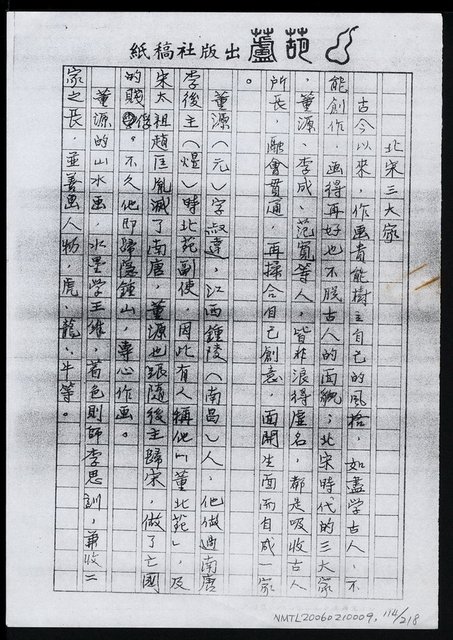 葫蘆出版社稿紙
北宋三大家
古今以來，作画貴能樹立自己的風格，如盡学古人，不
能創作，画得再好也不脫古人的面貌；北宋時代的三大家
，董源、李成、范寬等人，皆非浪得虛名，都是吸收古人
所長，融會貫通，再揉合自己創意，面開生面而自成一家
。
董源（元）字叔達，江西鍾陵（南昌）人，他做過南唐
李後主（煜）時北苑副使，因此有人稱他「董北苑」，及
宋太祖趙匡胤滅了南唐，董源也跟隨後主歸宋，做了亡國
的賤俘。不久他即歸隱鍾山，專心作画。
董源的山水画，水墨学王維，着色則師李思訓，兼收二
家之長，並善画人物，虎、龍、牛等。
NMTL20060210009, 114/218